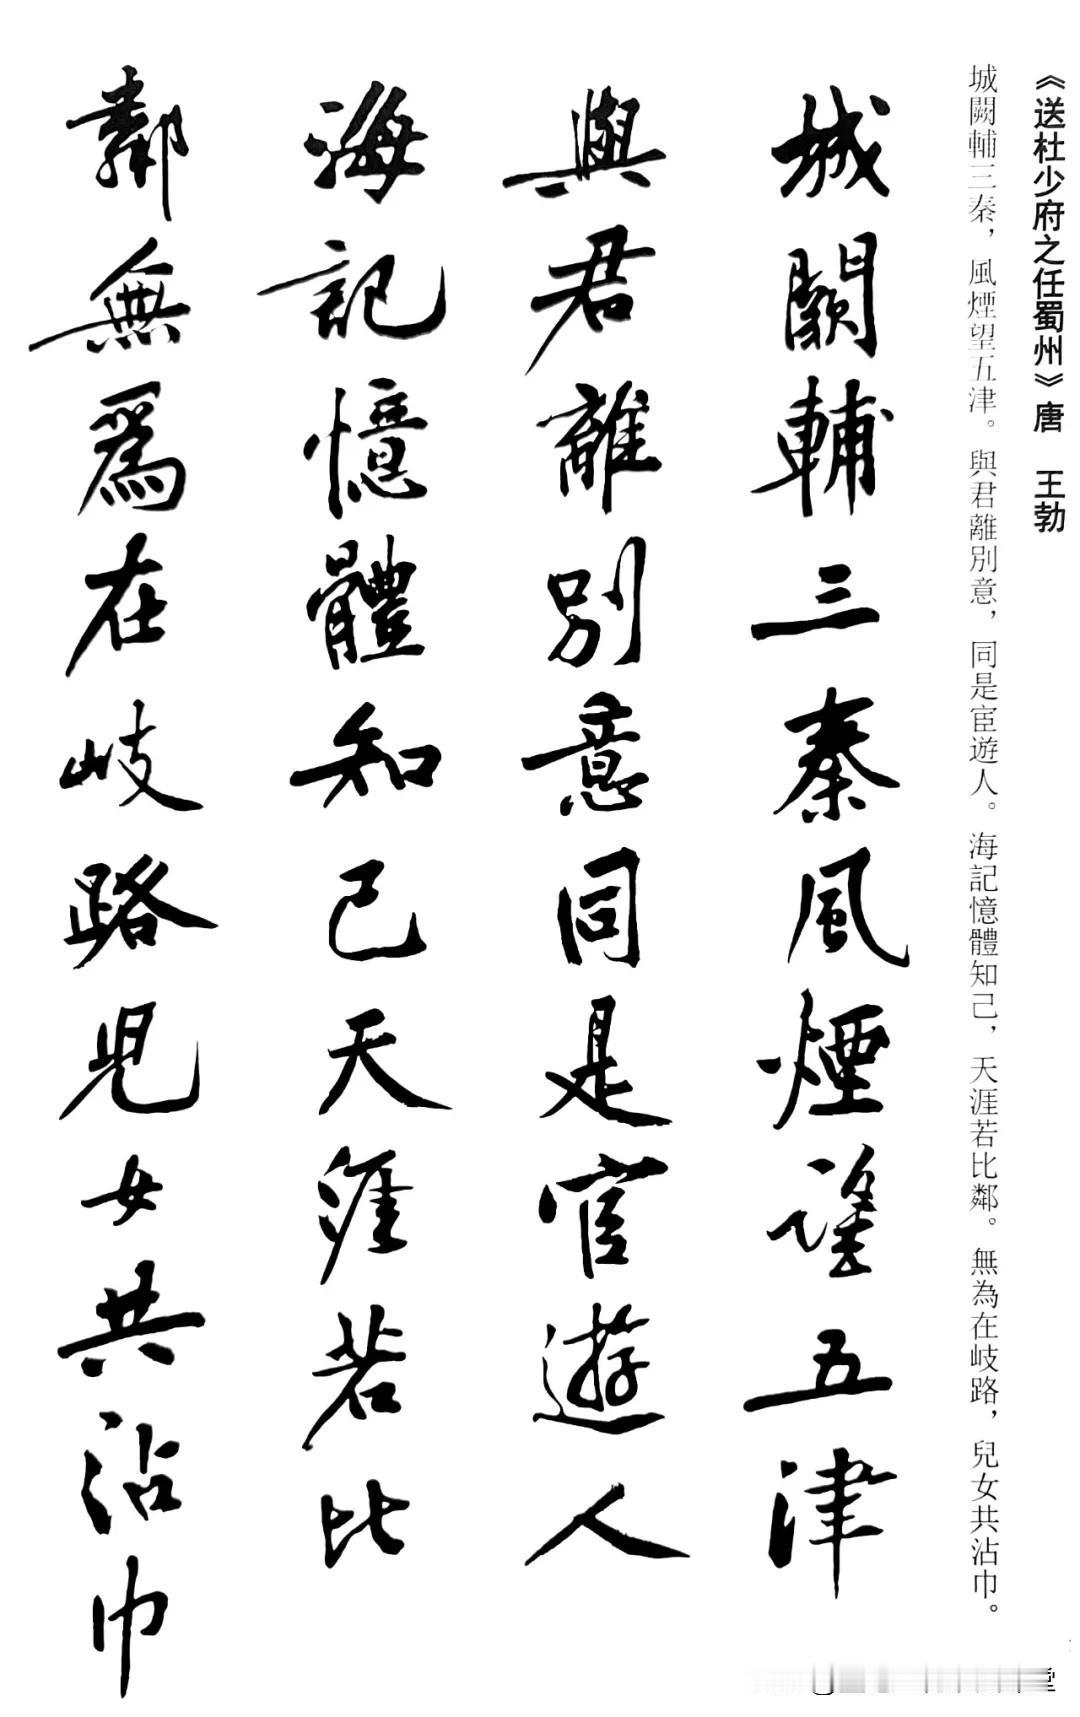 《送杜少府之任蜀州》唐 王勃
城闕輔三秦，風煙望五津。與君離別意，同是宦遊人。海記憶體知己，天涯若比鄰。無為在岐路，兒女共沾巾。
城闕輔三秦風煙望五津
與君離別意同是宦遊人
海記憶體知己天涯若比
鄰無為在岐路兒女共沾巾